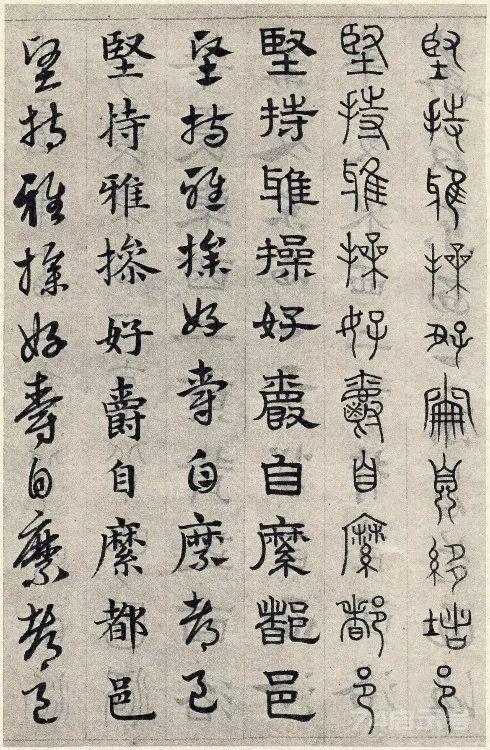 堅持雅操好爵自縻都邑
堅持雅操好爵自縻都邑
堅持雅操好爵自縻都邑
堅持雅操好爵自縻都邑
堅持雅操好爵自縻都邑
堅持雅操好爵自縻都邑